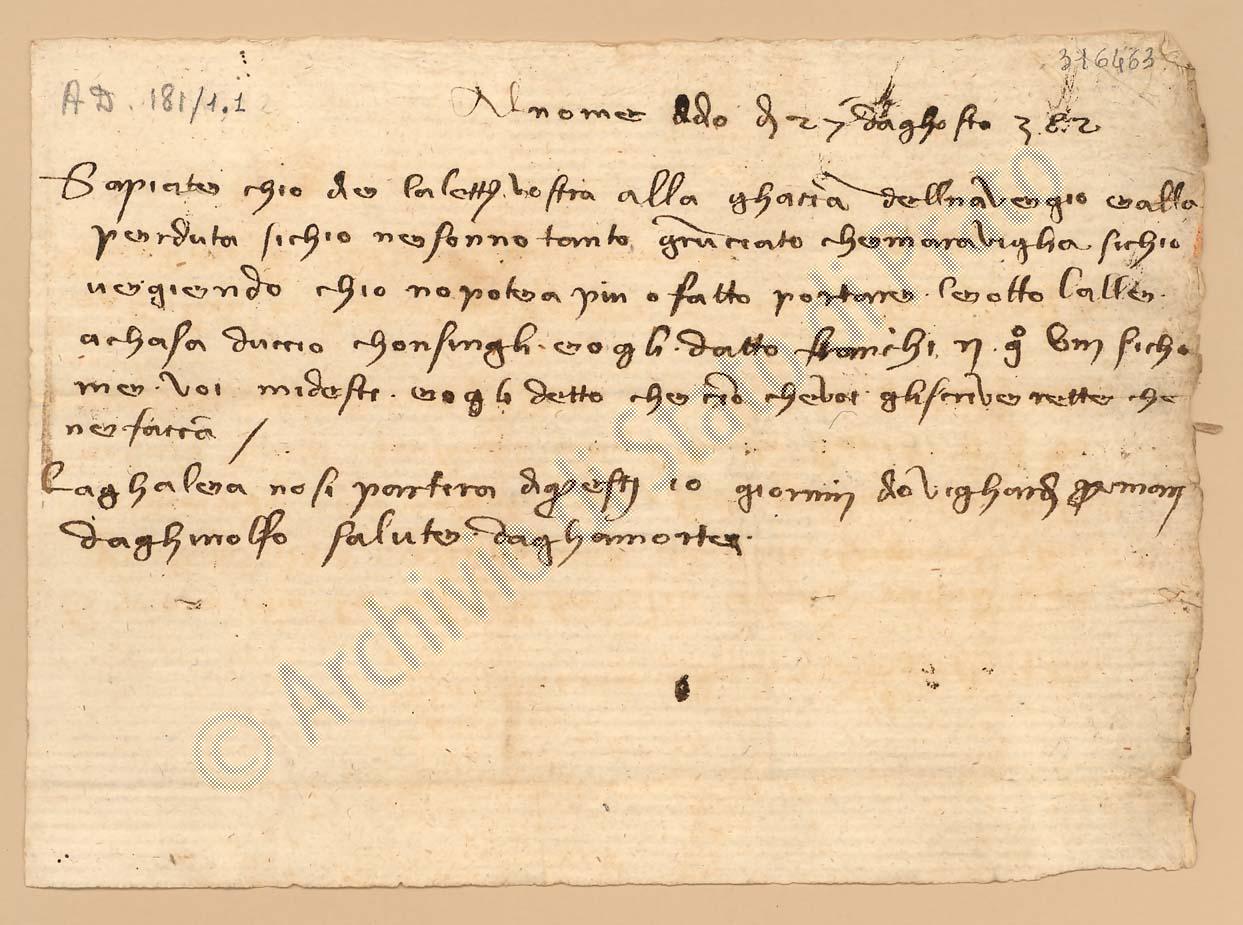 316463
AD. 181/1.1
Al nome ddo dì 27 daghosto 382
Sapiate chio de la lettera vostra alla ghacia dellnavegio e alla
perduta sichio ne sonno tanto grucciato che maraviglia sichio
vegiendo chio no potea piu o fatto portare le otto balle
a chasa duccio chonsingli e o gli datto franchi n. Vm sicho
me voi mi desti e ogli detto che ciò che voi gli scriverette che
ne faccia /
La ghalea no si partira di questi 10 giorni
daghinolfo salute daghamorte
© Archivio di Stato di Prato